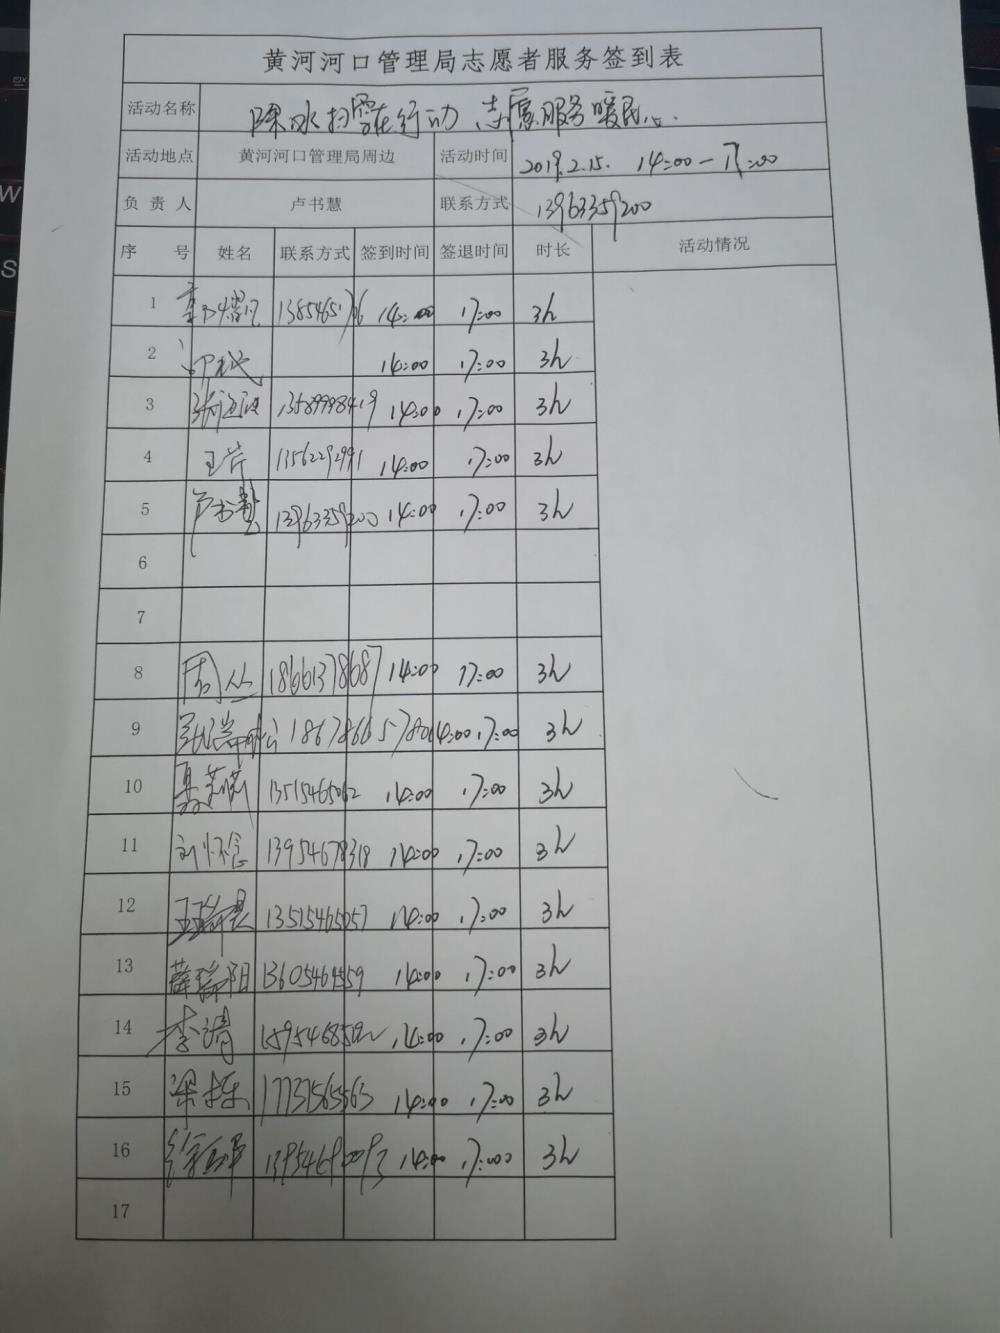 黄河河口管理局志愿者服务签到表
活动名称 除冰扫雪在行动 志愿服务暖民心.
活动地点 黄河河口管理局周边 活动时间 2019.2.15. 14:00—17:00
负责人 卢书慧 联系方式 13963359200
序号 姓名 联系方式 签到时间 签退时间 时长 活动情况
1 14:00 17:00 3h
2 14:00 17:00 3h
3 13589998419 14:00 17:00 3h
4 王芹 13562292991 14:00 17:00 3h
5 卢书慧 13963359200 14:00 17:00 3h
6
7
8 周丛 18661378687 14:00 17:00 3h
9 14:00 17:00 3h
10 13515465062 14:00 17:00 3h
11 刘怀信 13954678318 14:00 17:00 3h
12 13515465057 14:00 17:00 3h
13 薛瑞阳 13605464559 14:00 17:00 3h
14 李清 14:00 17:00 3h
15 梁栋 17737565563 14:00 17:00 3h
16 14:00 17:00 3h
17